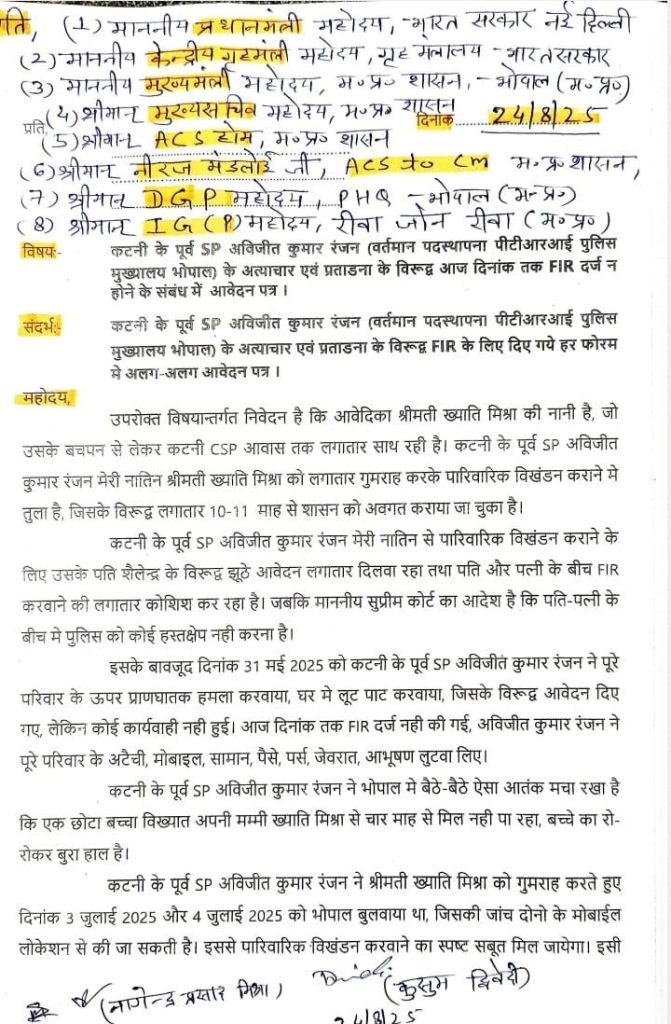 प्रति, (1) माननीय प्रधानमंत्री महोदय, - भारत सरकार नई दिल्ली
(2) माननीय केन्द्रीय गृहमंत्री महोदय, गृह मंत्रालय - भारत सरकार
(3) माननीय मुख्यमंत्री महोदय, म०प्र० शासन, - भोपाल (म०प्र०)
(4) श्रीमान् मुख्य सचिव महोदय, म०प्र० शासन
प्रति, दिनांक 24/8/25
(5) श्रीमान् ACS होम, म०प्र० शासन
(6) श्रीमान् नीरज मंडलोई जी, ACS to CM म०प्र० शासन,
(7) श्रीमान् DGP महोदय, PHQ - भोपाल (म०प्र०)
(8) श्रीमान् IG (P) महोदय, रीवा जोन रीवा (म०प्र०)
विषय:- कटनी के पूर्व SP अविजीत कुमार रंजन (वर्तमान पदस्थापना पीटीआरआई पुलिस
मुख्यालय भोपाल) के अत्याचार एवं प्रताडना के विरूद्व आज दिनांक तक FIR दर्ज न
होने के संबंध में आवेदन पत्र ।
संदर्भ:- कटनी के पूर्व SP अविजीत कुमार रंजन (वर्तमान पदस्थापना पीटीआरआई पुलिस
मुख्यालय भोपाल) के अत्याचार एवं प्रताडना के विरूद्व FIR के लिए दिए गये हर फोरम
मे अलग-अलग आवेदन पत्र ।
महोदय,
उपरोक्त विषयान्तर्गत निवेदन है कि आवेदिका श्रीमती ख्याति मिश्रा की नानी है, जो
उसके बचपन से लेकर कटनी CSP आवास तक लगातार साथ रही है। कटनी के पूर्व SP अविजीत
कुमार रंजन मेरी नातिन श्रीमती ख्याति मिश्रा को लगातार गुमराह करके पारिवारिक विखंडन कराने मे
तुला है, जिसके विरूद्व लगातार 10-11 माह से शासन को अवगत कराया जा चुका है।
कटनी के पूर्व SP अविजीत कुमार रंजन मेरी नातिन से पारिवारिक विखंडन कराने के
लिए उसके पति शैलेन्द्र के विरूद्व झूठे आवेदन लगातार दिलवा रहा तथा पति और पत्नी के बीच FIR
करवाने की लगातार कोशिश कर रहा है। जबकि माननीय सुप्रीम कोर्ट का आदेश है कि पति-पत्नी के
बीच मे पुलिस को कोई हस्तक्षेप नही करना है।
इसके बावजूद दिनांक 31 मई 2025 को कटनी के पूर्व SP अविजीत कुमार रंजन ने पूरे
परिवार के ऊपर प्राणघातक हमला करवाया, घर मे लूट पाट करवाया, जिसके विरूद्व आवेदन दिए
गए, लेकिन कोई कार्यवाही नही हुई। आज दिनांक तक FIR दर्ज नही की गई, अविजीत कुमार रंजन ने
पूरे परिवार के अटैची, मोबाइल, सामान, पैसे, पर्स, जेवरात, आभूषण लुटवा लिए।
कटनी के पूर्व SP अविजीत कुमार रंजन ने भोपाल मे बैठे-बैठे ऐसा आतंक मचा रखा है
कि एक छोटा बच्चा विख्यात अपनी मम्मी ख्याति मिश्रा से चार माह से मिल नही पा रहा, बच्चे का रो-
रोकर बुरा हाल है।
कटनी के पूर्व SP अविजीत कुमार रंजन ने श्रीमती ख्याति मिश्रा को गुमराह करते हुए
दिनांक 3 जुलाई 2025 और 4 जुलाई 2025 को भोपाल बुलवाया था, जिसकी जांच दोनो के मोबाईल
लोकेशन से की जा सकती है। इससे पारिवारिक विखंडन करवाने का स्पष्ट सबूत मिल जायेगा। इसी
(नागेन्द्र प्रसाद मिश्रा) (कुसुम द्विवेदी)
24/8/25